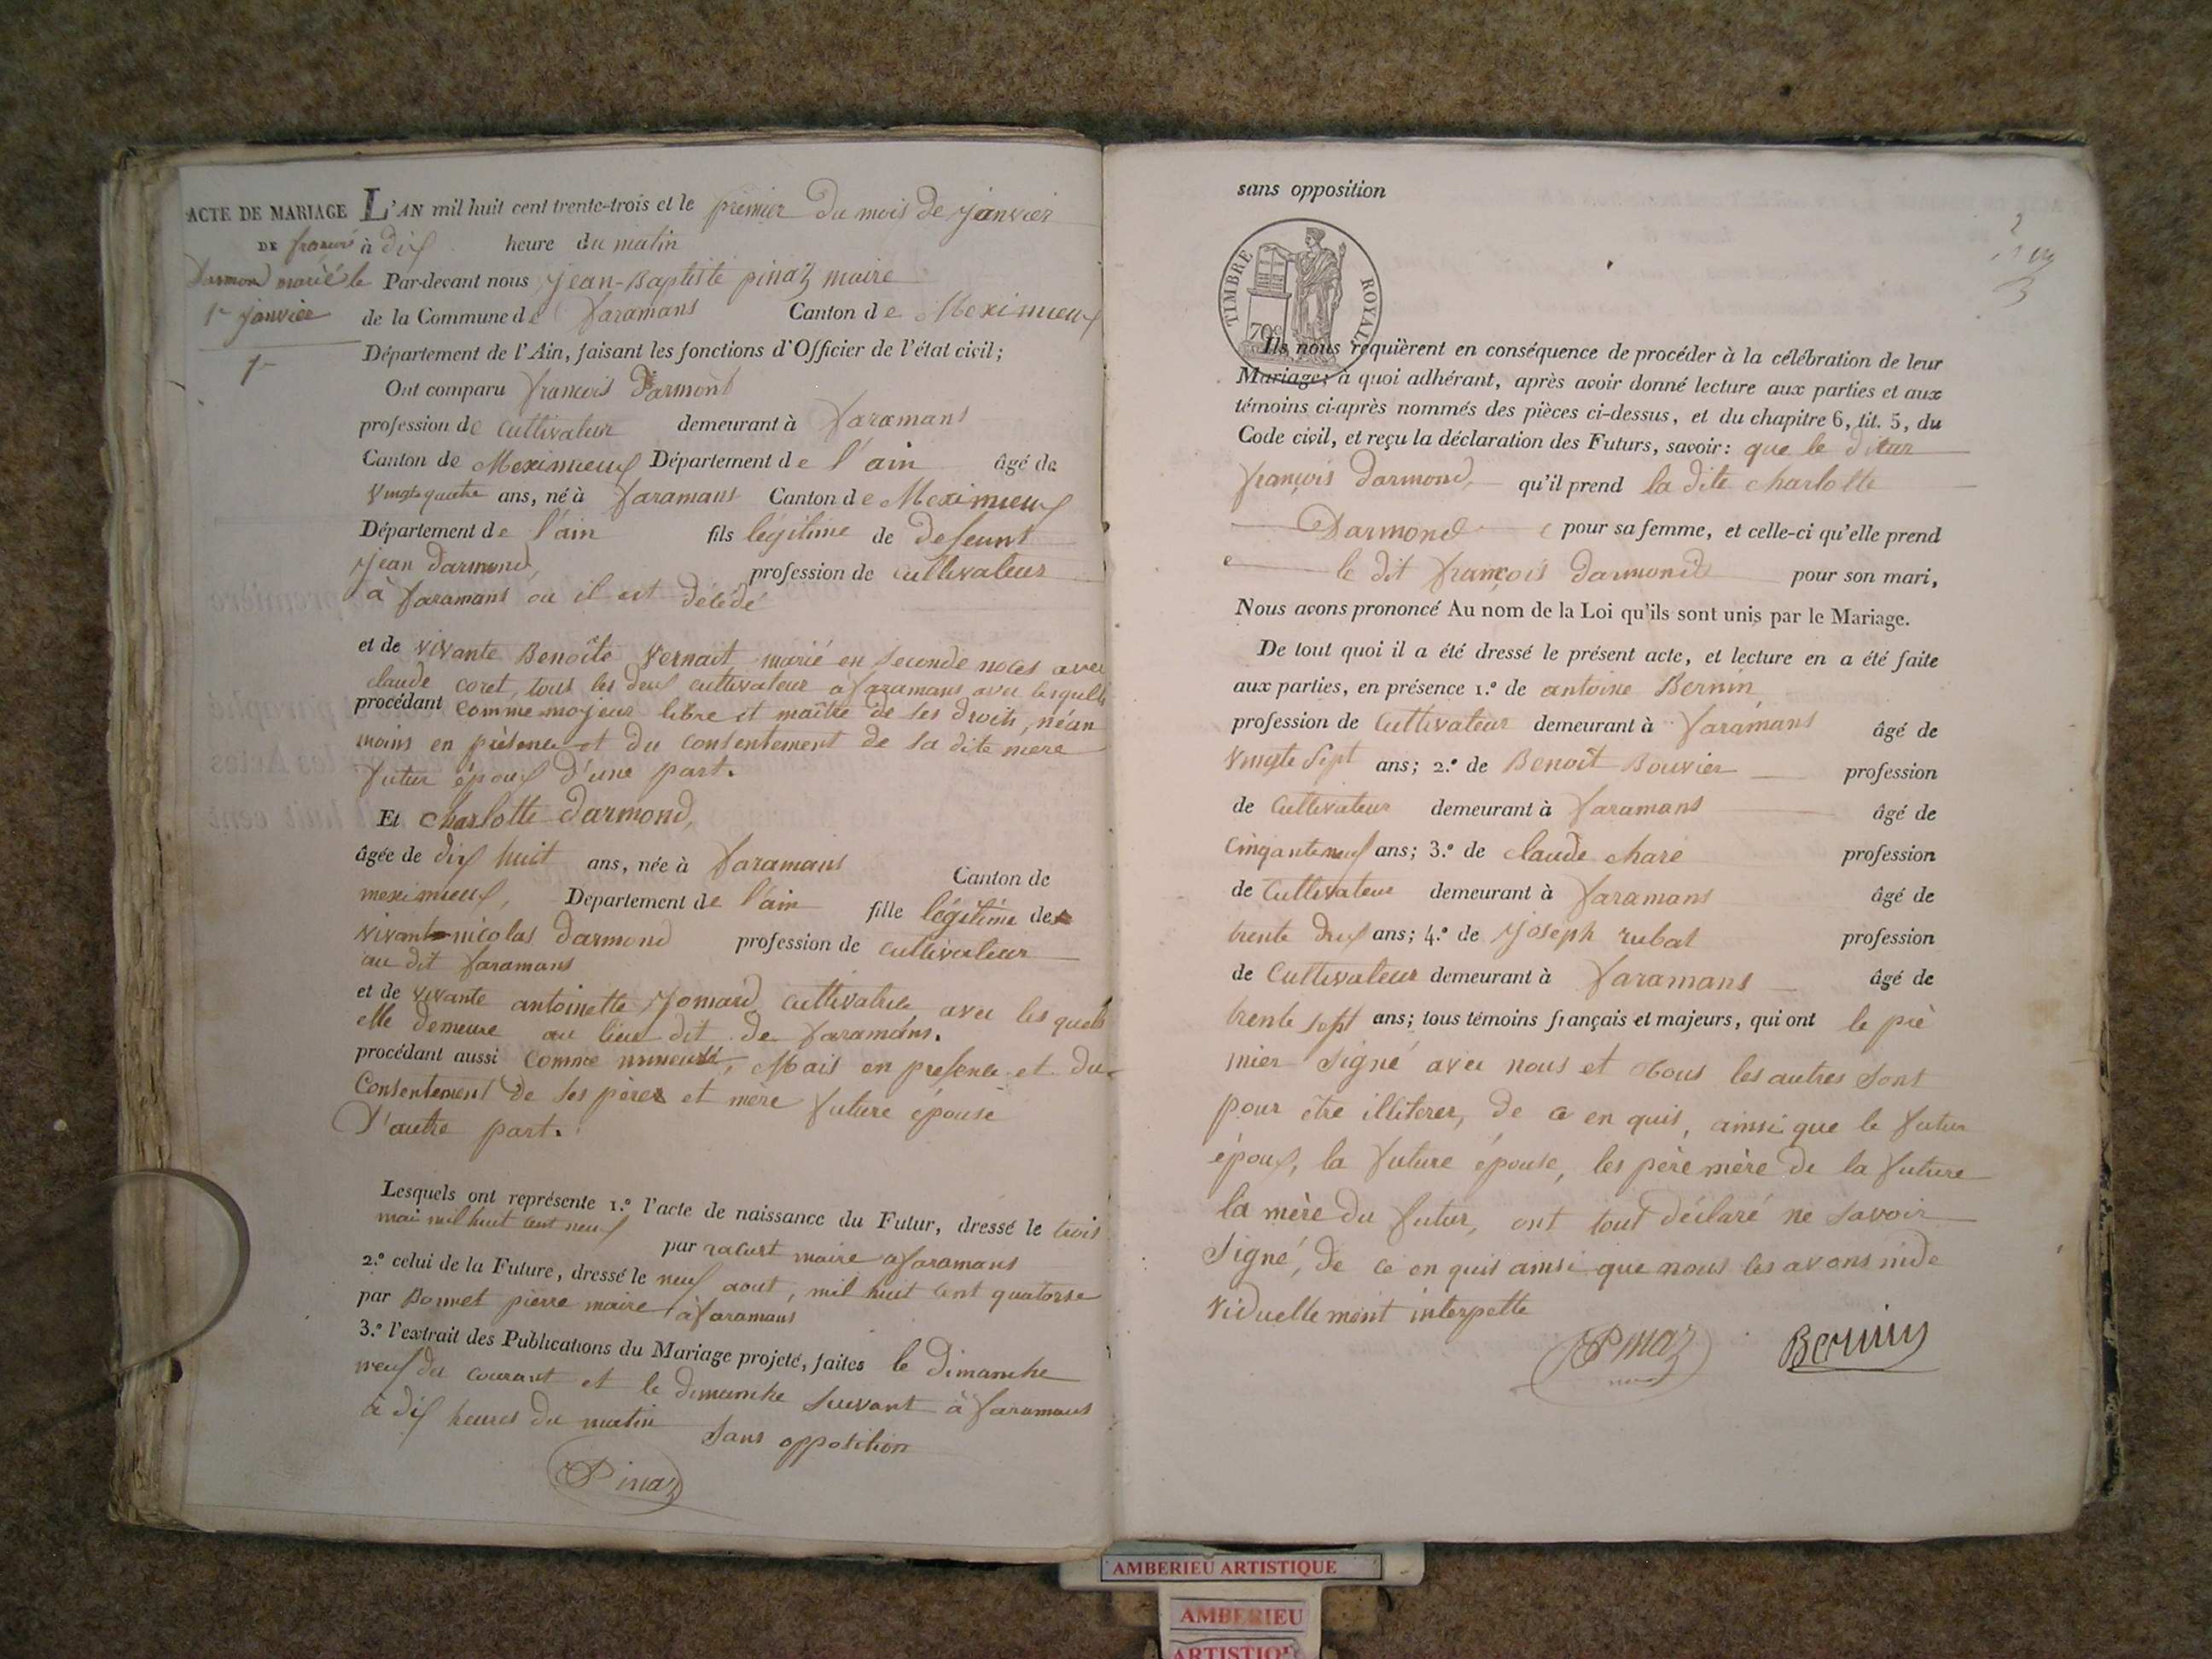 ACTE DE MARIAGE L'AN mil huit cent trente-trois et le premier du mois de janvier
DE françois à dix heure du matin
Darmond marié le Par-devant nous jean-Baptiste pinaz maire
1er janvier de la Commune de faramans Canton de Meximieux
1er Département de l'Ain, faisant les fonctions d'Officier de l'état civil;
Ont comparu françois Darmont
profession de cultivateur demeurant à faramans
Canton de Meximieux Département de l'ain âgé de
vingt quatre ans, né à faramans Canton de Meximieux
Département de l'ain fils légitime de defeunt
jean darmond, profession de cultivateur
à faramans ou il est décédé
et de vivante Benoîte vernait marié en seconde noces avec
claude coret, tous les deux cultivateur a faramans avec lesquells
procédant comme majeur libre et maître de ses droits, néan
moins en présence et du consentement de sa dite mere
futur époux d'une part.
Et charlotte darmond,
âgée de dix huit ans, née à faramans Canton de
meximieux, Département de l'ain fille légitime de
vivant nicolas darmond profession de cultivateur
au dit faramans
et de vivante antoinette jomard cultivatrice avec les quels
elle demeure au lieu dit de faramans.
procédant aussi comme mineure, Mais en presence et du
Consentement de ses pères et mère future épouse
D'autre part.
Lesquels ont représente 1.º l'acte de naissance du Futur, dressé le trois
mai mil huit cent neuf par racurt maire a faramans
2.º celui de la Future, dressé le neuf aout, mil huit cent quatorse
par Bonnet pierre maire à faramans
3.º l'extrait des Publications du Mariage projeté, faites le dimanche
neuf du courant et le dimanche suivant à faramans
à dix heures du matin sans opposition
Pinaz
sans opposition
3
TIMBRE ROYAL
70c
Ils nous requièrent en conséquence de procéder à la célébration de leur
Mariage; à quoi adhérant, après avoir donné lecture aux parties et aux
témoins ci-après nommés des pièces ci-dessus, et du chapitre 6, tit. 5, du
Code civil, et reçu la déclaration des Futurs, savoir: que le
françois darmond, qu'il prend la dite charlotte
Darmond pour sa femme, et celle-ci qu'elle prend
le dit françois darmond pour son mari,
Nous avons prononcé Au nom de la Loi qu'ils sont unis par le Mariage.
De tout quoi il a été dressé le présent acte, et lecture en a été faite
aux parties, en présence 1.º de antoine Bernin
profession de cultivateur demeurant à faramans âgé de
vingte sept ans; 2.º de Benoît Bouvier profession
de cultivateur demeurant à faramans âgé de
cinqante neuf ans; 3.º de claude charé profession
de cultivateur demeurant à faramans âgé de
trente deux ans; 4.º de joseph rubat profession
de cultivateur demeurant à faramans âgé de
trente sept ans; tous témoins français et majeurs, qui ont le pre
mier signé avec nous et tous les autres sont
pour être illiterer, de ce en quis, ainsi que le futur
époux, la future épouse, les père mère de la future
la mère du futur, ont tout déclaré ne savoir
signé, de ce en quis ainsi que nous les avons inde
viduellement interpelle
Pinaz Bernin
AMBERIEU ARTISTIQUE
AMBERIEU
ARTISTIQUE